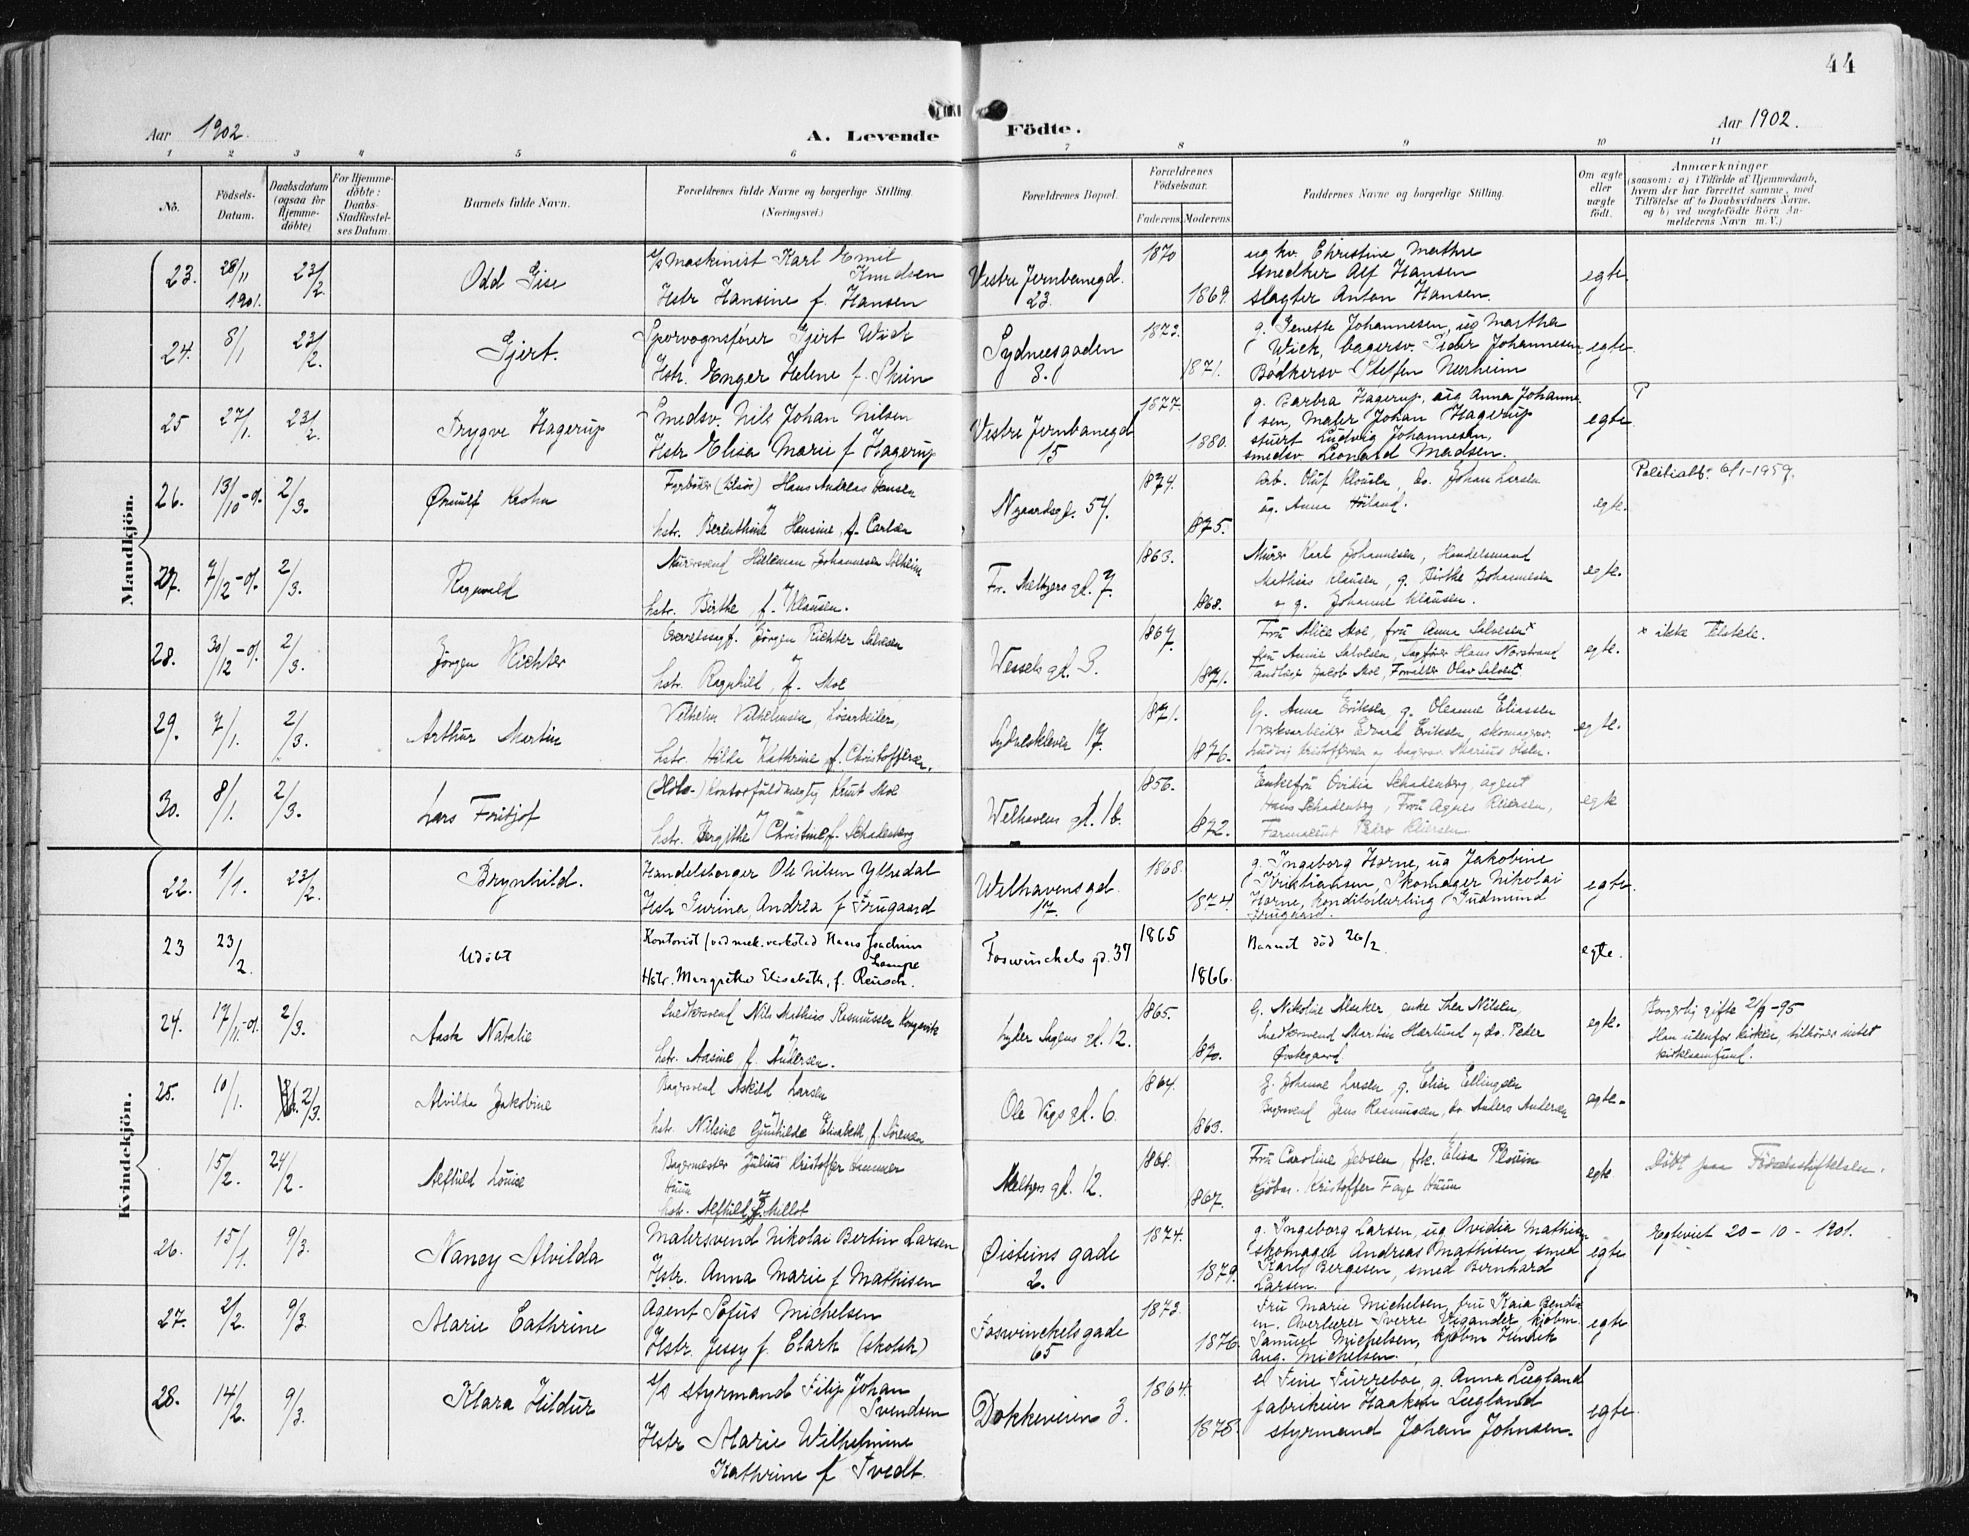 44
Aar 1902.
A. Levende Födte.
Aar 1902.
1 2 3 4 5 6 7 8 9 10 11
No.
Födsels-
Datum.
Daabsdatum
(ogsaa for
Hjemme-
döbte)
For Hjemme-
döbte:
Daabs-
Stadfæstel-
ses Datum.
Barnets fulde Navn.
Forældrenes fulde Navne og borgerlige Stilling.
(Næringsvei.)
Forældrenes Bopæl.
Forældrenes
Födselsaar.
Faderens.
Moderens.
Faddernes Navne og borgerlige Stilling.
Om ægte
eller
uægte
født.
Anmærkninger
(saasom: a) i Tilfælde af Hjemmedaab,
hvem der har forrettet samme, med
Tilföielse af to Daabsvidners Navne,
og b) ved uægtefödte Börn An-
melderens Navn m. V.)
Mandkjön.
23. 28/11 1901. 23/2. Odd Gise
s/s Maskinist Karl Emil
Knudsen
Hstr Hansine f. Hansen
Vestre Jernbanegd.
23.
1870
1869.
ug kv. Christine Mathre
snedker Alf Hansen
slagter Anton Hansen.
egte.
24. 8/1 23/2. Gjert.
Sporvognsfører Gjert Wick
Hstr. Enger Helene f. Skien
Sydnesgaden
8.
1873.
1871.
g. Genette Johannesen, ug Martha
Wick, bagersv. Peder Johannesen
Bødkersv Steffen Neerheim
egte.
25 27/1. 23/2. Trygve Hagerup
Smedsv. Nils Johan Nilsen
Hstr Elisa Marie f Hagerup
Vestre Jernbanegd
15
1877.
1880.
g. Barbra Hagerup, ug Anna Johanne-
sen, Maler Johan Hagerup
stuert Ludvig Johannesen,
smedsv. Leonard Madsen.
egte.
26. 13/10-01. 2/3. Ørnulf Krohn
Fyrbøter Hans Andreas Jensen
hstr. Berenthine Hansine, f. Carlsen
Nygaardsgd. 57.
1874.
1875.
Arb. Oluf Klousen, do. Johan Larsen
ug. Anna Høiland.
egte.
Politiatt. 6/1-1959.
27. 7/12-01. 2/3. Ragnvald
Murersvend Johannesen Solheim
hstr. Birthe f. Klausen.
Fr. Meltzers gd. 7.
1863.
1868.
Murer Karl Johannesen, Handelsmand
Mathias Klausen, g. Birthe Johannesen
og g. Johanne Klausen.
egte.
28. 30/12-01. 2/3. Jörgen Richter
Overretssagf. Jörgen Richter Salvesen
hstr. Ragnhild, f. Moe
Wessels gd. 3.
1867.
1871.
Fru Alice Moe, fru Anna Salvesen x
fru Annie Salvesen, Sagfører Hans Norstrand
Tandlæge Jacob Moe, Forvalter Olav Salvesen x
egte.
x ikke tilstede.
29. 7/1. 2/3. Arthur Martin
Vilhelm Vilhelmsen, Løsarbeider,
hstr. Hilda Kathrine f. Christoffersen.
Sydneskleven 17.
1871.
1876.
G. Anna Eriksen g. Oleanne Eliassen
verksarbeider Edvard Eriksen, skomagersv.
Ludvig Kristoffersen og bagersv. Marius Olsen.
egte.
30. 8/1. 2/3. Lars Fritjof
Kontorfuldmægtig Knut Moe
hstr. Bergithe Christine f. Schadenberg
Welhavens gd. 16.
1856.
1872.
Enkefru Ovidia Schadenberg, agent
Hans Schadenberg, Fru Agnes Kiersen,
Farmaceut Pedro Kiersen.
egte
Kvindekjön.
22. 1/1. 23/2. Brynhild.
Handelsborger Ole Nilsen Ytredal
Hstr Gurina Andrea f Frugaard
Welhavensgd.
17.
1868.
1874.
g. Ingeborg Horne, ug Jakobine
Kristiansen, Skomager Nikolai
Horne, Konditorlærling Gudmund
Frugaard.
egte.
23 23/2. Udöbt
Kontorist (ved mek. verksted Hans Joachim
Lampe
Hstr. Margrethe Elisabeth, f. Reusch.
Foswinckels gd. 37
1865
1866.
Barnet död 26/2
egte.
24. 17/11-01. 2/3. Aasta Natalie
Snedkersvend Nils Mathias Rasmussen Kongsvik
hstr. Aasine f. Andersen.
Lyder Sagens gd. 12.
1865.
1870.
G. Nikolie Munker, enke Thea Nilsen,
Snedkersvend Martin Hærlund og do. Peder
Øvstegaard.
egte.
Borgerlig gifte 21/9-95
Han udenfor kirken, tilhører intet
kirkesamfund.
25. 10/1. 2/3. Alvilda Jakobine
Bagersvend Askild Larsen
hstr. Nilsine Gunhilde Elisabeth f. Sørensen
Ole Vigs gd. 6.
1864.
1863.
G. Johanne Larsen g. Elise Ellingsen
Bagersvend Jens Rasmussen, do Anders Andersen
egte.
15/2. 24/2. Alfhild Louise
Bagermester Julius Kristoffer Hammer
Huun
hstr. Alfhild f. Millot
Meltzers gd. 12.
1868.
1867.
Fru Caroline Jebsen frk. Elisa Plouin
Kjøbm. Kristoffer Faye Huun
egte.
Døbt paa Fødselsstiftelsen.
26. 15/1. 9/3. Nancy Alvilda
Malersvend Nikolai Bertin Larsen
Hstr. Anna Marie f Mathisen
Øisteins gade
2.
1874.
1879.
g. Ingeborg Larsen, ug Ovidia Mathisen
skomager Andreas Mathisen, smed
Karl Bergesen, smed Bernhard
Larsen.
egte
Egteviet 20-10-1901.
27. 2/2. 9/3. Marie Cathrine
Agent Sofus Michelsen
Hstr. Jessy f. Clark (skotsk)
Foswinckelsgade
65
1873
1876.
Fru Marie Michelsen, fru Kaia Bendix-
en. Sverre Wigander, kjøbm.
Samuel Michelsen, kjøbm Henrik
Aug. Michelsen.
egte
28. 14/2. 9/3. Klara Hildur
s/s styrmand Filip Johan
Svendsen
Hstr Marie Wilhelmine
Kathrine f Tvedt.
Dokkeveien 3.
1864.
1878.
e Fine Furreboe, g. Anna Lægland
fabrikeier Haakon Lægland
styrmand Johan Johnsen.
egte.